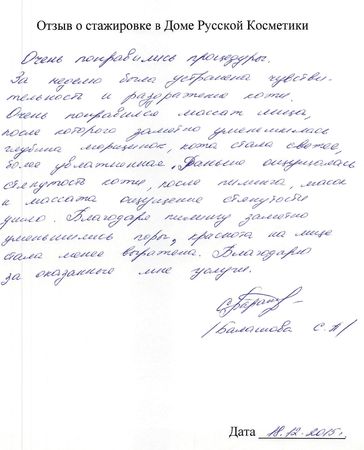 Отзыв о стажировке в Доме Русской Косметики
Очень понравились процедуры.
За неделю была устранена чувстви-
тельность и раздражение кожи.
Очень понравился массаж лица,
после которого заметно уменьшилась
глубина морщинок, кожа стала свежее,
более увлажненная. Раньше ощущалась
стянутость кожи, после пилинга, масок
и массажа ощущение стянутости
ушло. Благодаря пилингу заметно
уменьшились поры, краснота на лице
стала менее выражена. Благодарю
за оказанные мне услуги.
/Балашова С. А/
Дата 18.12.2015г.